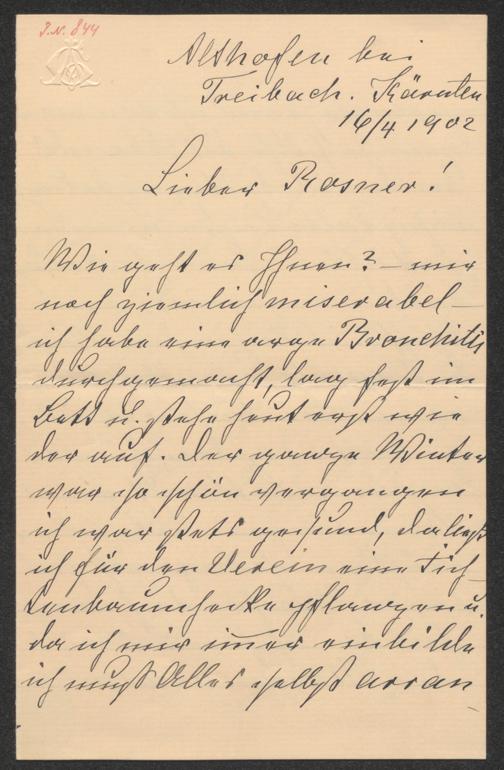 J.N. 844
Althofen bei
Treibach. Kärnten
16/4 1902
Lieber Rosner!
Wie geht es Ihnen? – mir
noch ziemlich miserabel –
ich habe eine arge Bronchitis
durchgemacht, lag fest im
Bett u. stehe heut erst wie
der auf. Der ganze Winter
war so schön vergangen
ich war stets gesund, da ließ
ich für den Verein eine Fich
tenbaumhecke pflanzen u.
da ich mir im̄er einbilde
ich muß Alles selbst arran